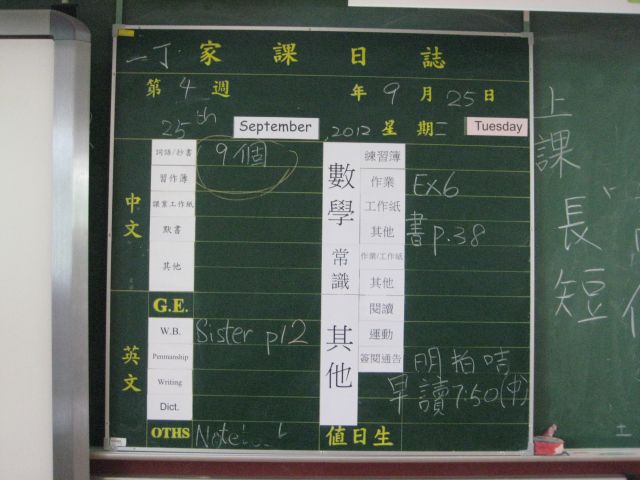 一丁 家課日誌
第4週 年9月25日
25th September, 2012 星期二 Tuesday
中文
詞語/抄書 9個
習作簿
課業工作紙
默書
其他
G.E.
英文
W.B. Sister p12
Penmanship
Writing
Dict.
OTHS
數學
練習簿
作業 Ex6
工作紙
其他 書p.38
常識
作業/工作紙
其他
其他
閱讀
運動
簽閱通告 明拍咭
早讀7:50(中)
值日生
上課
長
短